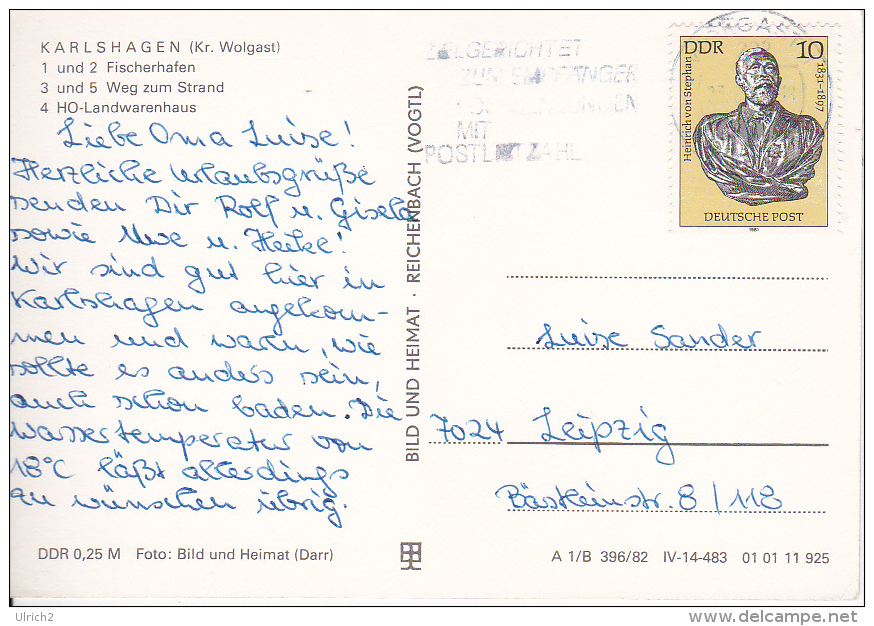 KARLSHAGEN (Kr. Wolgast)
1 und 2 Fischerhafen
3 und 5 Weg zum Strand
4 HO-Landwarenhaus
Liebe Oma Luise!
Herzliche Urlaubsgrüße
senden Dir Rolf u. Gisela
sowie Uwe u. Heike!
Wir sind gut hier in
Karlshagen angekom-
men und waren, wie
sollte es anders sein,
auch schon baden. Die
Wassertemperatur von
18°C läßt allerdings
zu wünschen übrig.
DDR 0,25 M Foto: Bild und Heimat (Darr)
BILD UND HEIMAT · REICHENBACH (VOGTL)
ZIELGERICHTET
ZUM EMPFÄNGER
MIT
POSTLEITZAHL
DDR 10
Heinrich von Stephan
1831-1897
DEUTSCHE POST
1981
Luise Sander
7024 Leipzig
Bästleinstr. 8/118
A 1/B 396/82 IV-14-483 01 01 11 925
Ulrich2
delcampe.net